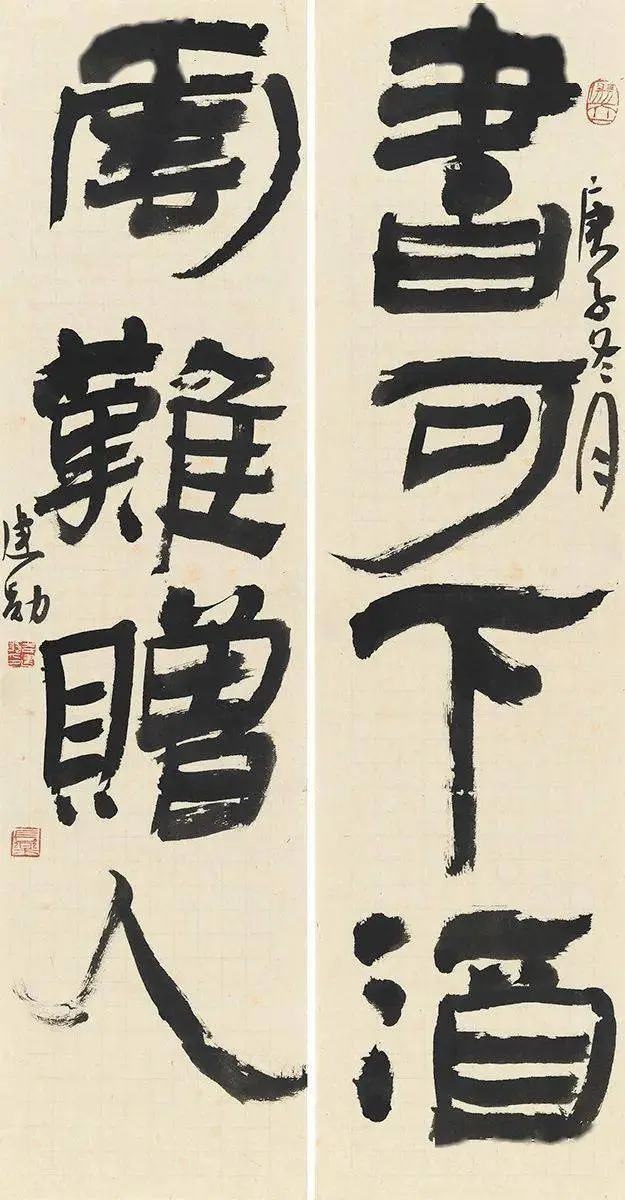 書可下酒
庚子冬月
雲難贈人
建勋